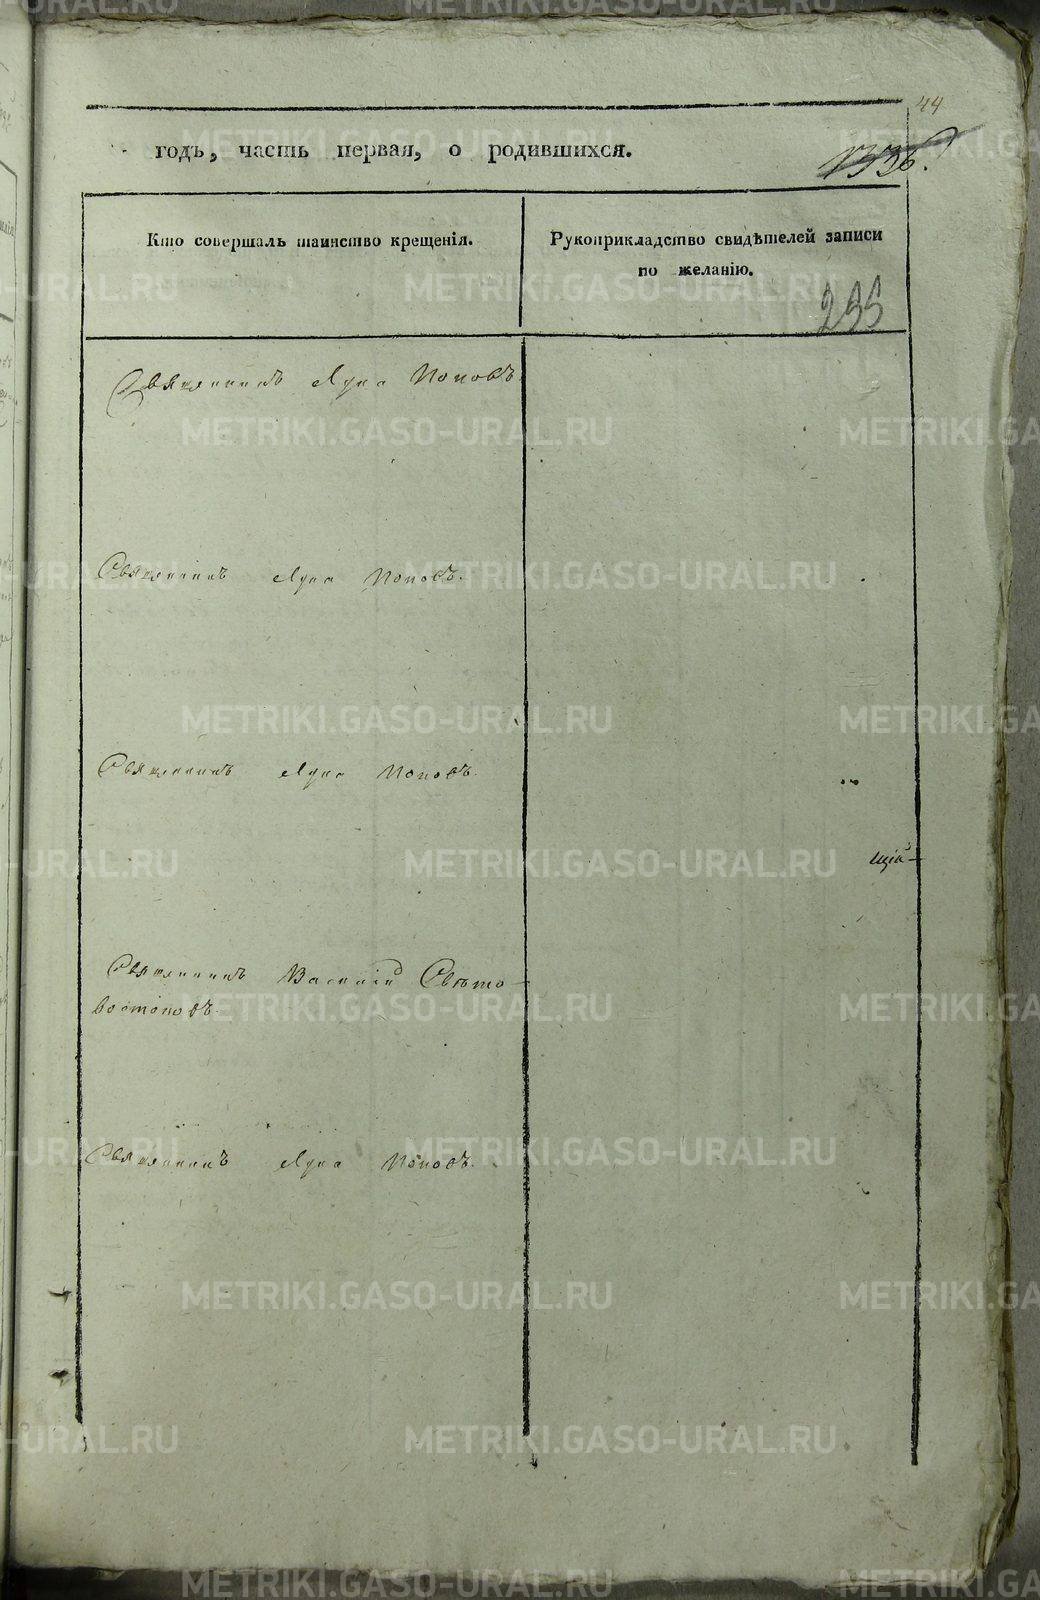 44
годъ, часть первая, о родившихся.
1336.
Кто совершалъ таинство крещенія.
Рукоприкладство свидѣтелей записи
по желанію.
235
Священникъ Лука Поповъ.
Священникъ Лука Поповъ.
Священникъ Лука Поповъ.
щій
Священникъ Василій Свѣто-
востоковъ.
Священникъ Лука Поповъ.
METRIKI.GASO-URAL.RU